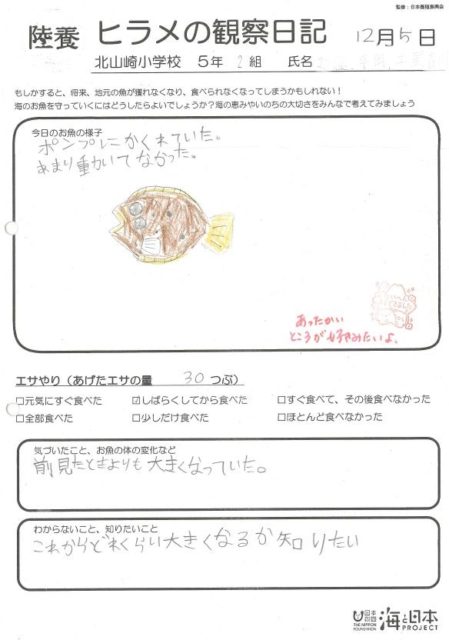 監修:日本養殖振興会
陸養 ヒラメの観察日記 12月5日
北山崎小学校 5年 2組 氏名
もしかすると、将来、地元の魚が獲れなくなり、食べられなくなってしまうかもしれない!
海のお魚を守っていくにはどうしたらよいでしょうか?海の恵みやいのちの大切さをみんなで考えてみましょう
今日のお魚の様子
ポンプにかくれていた。
あまり動いてなかった。
あったかい
ところが好きみたいよ。
エサやり(あげたエサの量 30 つぶ)
□元気にすぐ食べた ☑しばらくしてから食べた □すぐ食べて、その後食べなかった
□全部食べた □少しだけ食べた □ほとんど食べなかった
気づいたこと、お魚の体の変化など
前見たときよりも大きくなっていた。
わからないこと、知りたいこと
これからどれくらい大きくなるか知りたい
日本財団 THE NIPPON FOUNDATION 海と日本 PROJECT